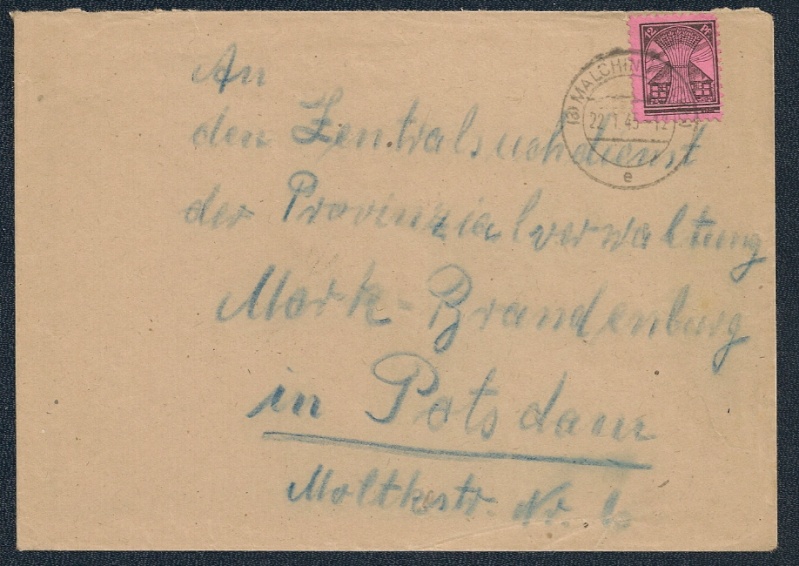 12
(3) MALCHIN
22.1.45 - 12
e
An
den Zentralsuchdienst
der Provinzialverwaltung
Mark-Brandenburg
in Potsdam
Moltkestr. Nr. 6